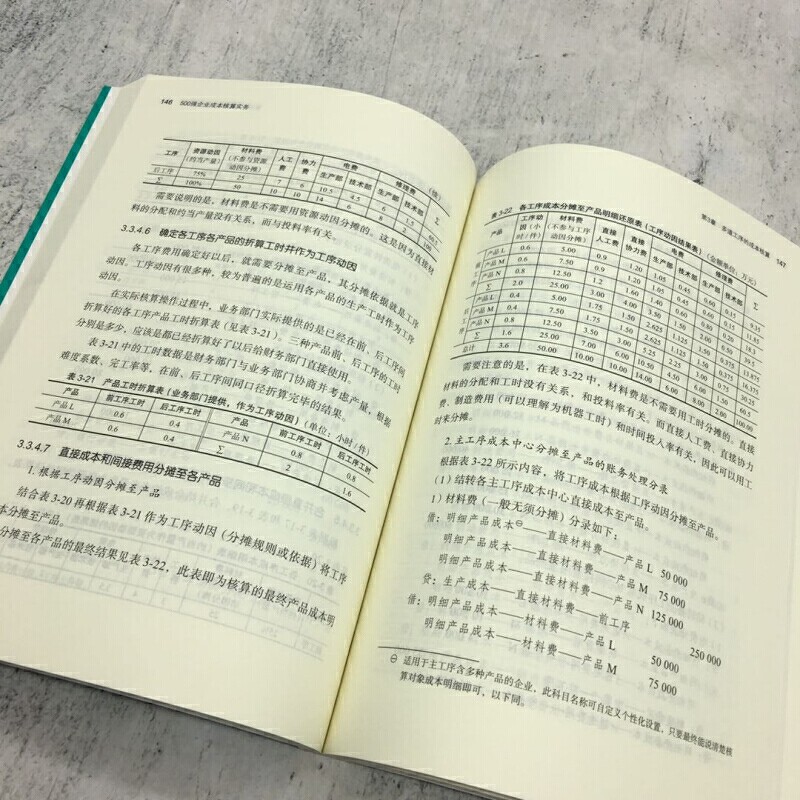 146 500强企业成本核算实务
(续)
工序 资源动因(约当产量) 材料费(不参与资源动因分摊) 人工费 协力费 电费 修理费 Σ
生产部 技术部 生产部 技术部
后工序 75% 25 7 6 10.5 4.5 6 1.5 60.5
Σ 100% 50 10 10 14 6 8 2 100
需要说明的是，材料费是不需要用资源动因分摊的。这是因为直接材
料的分配和约当产量没有关系，而与投料率有关。
3.3.4.6 确定各工序各产品的折算工时并作为工序动因
各工序费用确定好以后，就需要分摊至产品，其分摊依据就是工序
动因。工序动因有很多种，较为普遍的是运用各产品的生产工时作为工序
动因。
在实际核算操作过程中，业务部门实际提供的是已经在前、后工序间
折算好的各工序产品工时折算表（见表3-21）。三种产品前、后工序的工时
分别是多少，应该是都已经折算好了以后给财务部门直接使用。
表3-21中的工时数据是财务部门与业务部门协商并考虑产量、根据
难度系数、完工率等，在前、后工序间同口径折算完毕的结果。
表3-21 产品工时折算表（业务部门提供，作为工序动因）（单位：小时/件）
产品 前工序工时 后工序工时 产品 前工序工时 后工序工时
产品L 0.6 0.4 产品N 0.8 0.8
产品M 0.6 0.4 Σ 2 1.6
3.3.4.7 直接成本和间接费用分摊至各产品
1.根据工序动因分摊至产品
结合表3-20再根据表3-21作为工序动因（分摊规则或依据）将工序
本分摊至产品。
分摊至各产品的最终结果见表3-22，此表即为核算的最终产品成本明
第3章 多道工序的成本核算 147
表3-22 各工序成本分摊至产品明细还原表（工序动因结果表）（金额单位：万元）
产品 工序动因(小时/件) 材料费(不参与工序动因分摊) 直接人工费 直接协力费 电费 修理费 Σ
生产部 技术部 生产部 技术部
产品L 0.6 5.00 0.9 1.20 1.05 0.45 0.60 0.15 9.35
产品M 0.6 7.50 0.9 1.20 1.05 0.45 0.60 0.15 11.85
产品N 0.8 12.50 1.2 1.60 1.40 0.60 0.80 0.20 18.3
Σ 2.0 25.00 3.00 4.00 3.50 1.50 2.00 0.50 39.5
产品L 0.4 5.00 1.75 1.50 2.625 1.125 1.50 0.375 13.875
产品M 0.4 7.50 1.75 1.50 2.625 1.125 1.50 0.375 16.375
产品N 0.8 12.50 3.50 3.00 5.25 2.25 3.00 0.75 30.25
Σ 1.6 25.00 7.00 6.00 10.50 4.50 6.00 1.50 60.5
总计 3.6 50.00 10.00 10.00 14.00 6.00 8.00 2.00 100.00
需要注意的是，在表3-22中，材料费是不需要用工时分摊的。直接
材料的分配和工时没有关系，和投料率有关。而直接人工费、直接协力
费、制造费用（可以理解为机器工时）和时间投入率有关，因此可以用工
时来分摊。
2.主工序成本中心分摊至产品的账务处理分录
根据表3-22所示内容，将工序成本根据工序动因分摊至产品。
（1）结转各主工序成本中心直接成本至产品。
1）材料费（一般无须分摊）分录如下：
借：明细产品成本㊀——直接材料费——产品L 50 000
明细产品成本——直接材料费——产品M 75 000
明细产品成本——直接材料费——产品N 125 000
贷：生产成本——直接材料费——前工序 250 000
借：明细产品成本——材料费——产品L 50 000
明细产品成本——材料费——产品M 75 000
㊀ 适用于主工序含多种产品的企业，此科目名称可自定义个性化设置，只要最终能说清楚核
算对象成本明细即可，以下同。